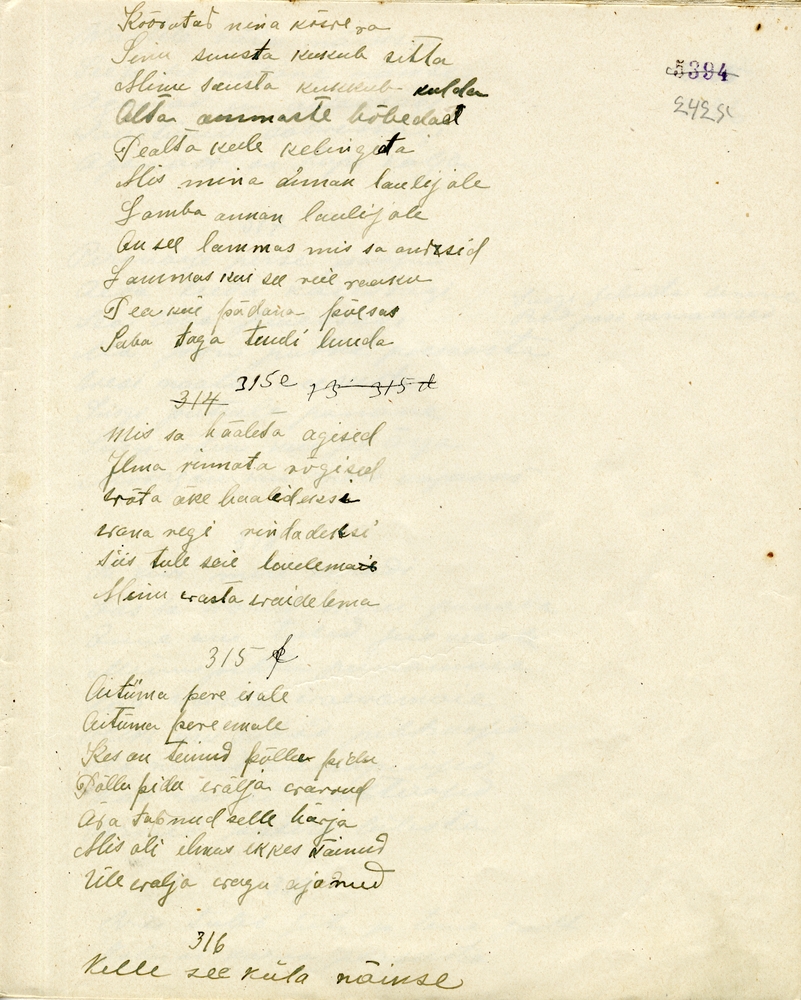 Köörutad nina
Sinu suusta kukub sitta
5394
Minu suusta kukkub kulda
Alta ammaste hõbedat
Pealta keele kelinguta
Mis mina annan laulijale
Lamba annan laulijale
On see lammas mis sa andsid
Lammas kui see
Pea kui põdara põlsas
Saba taga tuudi luuda
314 315 e 315 d
Mis sa hääleta ägised
Ilma rinnata rögised
wõta äke healideksi
wana regi rindadeksi
Siis tule seie laulemaie
Minu wasta waidelema
315 f
Aitüma pere isale
Aitüma pere emale
Kes on teinud põllu pidu
Põllu pidu wälja warrud
Ära tabnud selle härja
Mis oli ilmas ikkes käinud
Üle walja wagu ajanud
316
Kelle see küla näinse